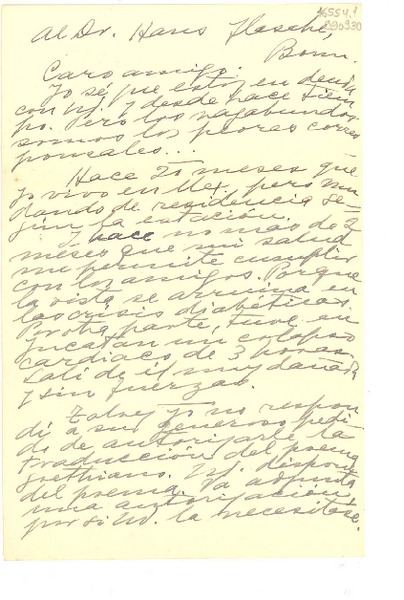 Al Dr. Hans Flasche,
Bonn.
Caro amigo:
Yo sé que estoy en deuda
con Ud. y desde hace tiem-
po. Pero los vagabundos
somos los peores corres
ponsales...
Hace 20 meses que
yo vivo en Mex. pero mu
dando de residencia se-
gún la estación.
Y hace no mas de 2
meses que mi salud
me permite cumplir
con los amigos. Porque
la vista se arruina en
las crisis diabéticas.
Por otra parte, tuve en
Yucatán un colapso
cardíaco de 3 horas.
Salí de él muy dañada
y sin fuerzas.
Talvez yo no respon
dí a su generoso pedi
do de autorizarle la
traducción del poema
goethiano. Ud. dispone
del poema. Va adjunta
una autorización,
por si Ud. la necesitase.